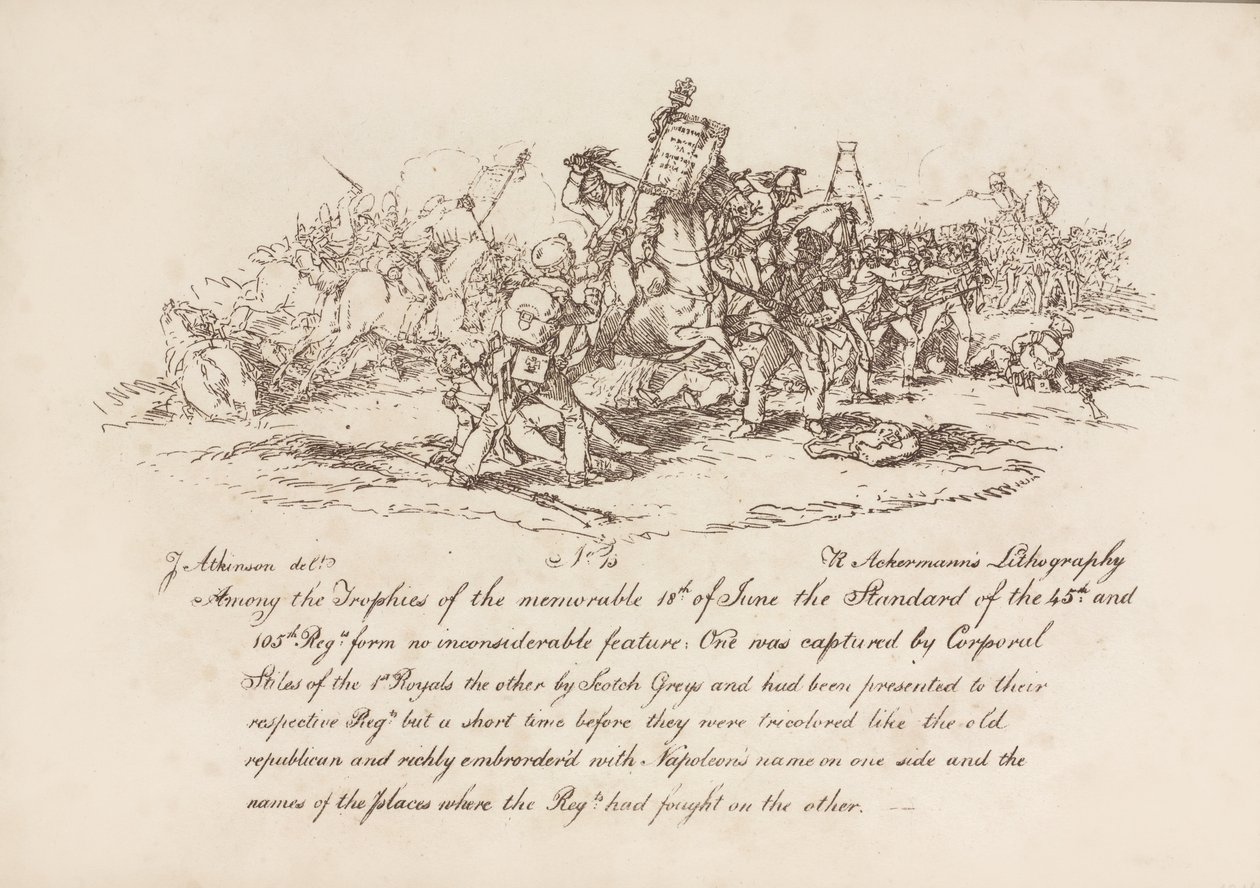 J Atkinson delt. No 15 R Ackermann's Lithography
Among the Trophies of the memorable 18th of June the Standard of the 45th and
105th Regts form no inconsiderable feature: One was captured by Corporal
Stiles of the 1st Royals the other by Scotch Greys and had been presented to their
respective Regts but a short time before they were tricolored like the old
republican and richly embrorder'd with Napoleon's name on one side and the
names of the places where the Regts had fought on the other. —